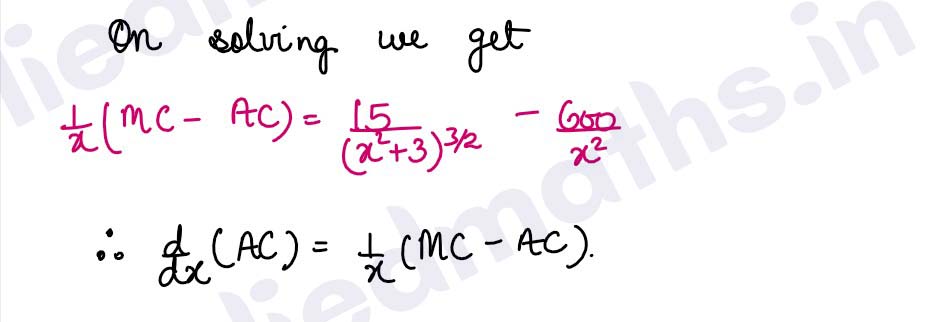 On solving we get
1/x (MC - AC) = 15/(x²+3)^3/2 - 600/x²
∴ d/dx (AC) = 1/x (MC - AC).
liedmaths.in